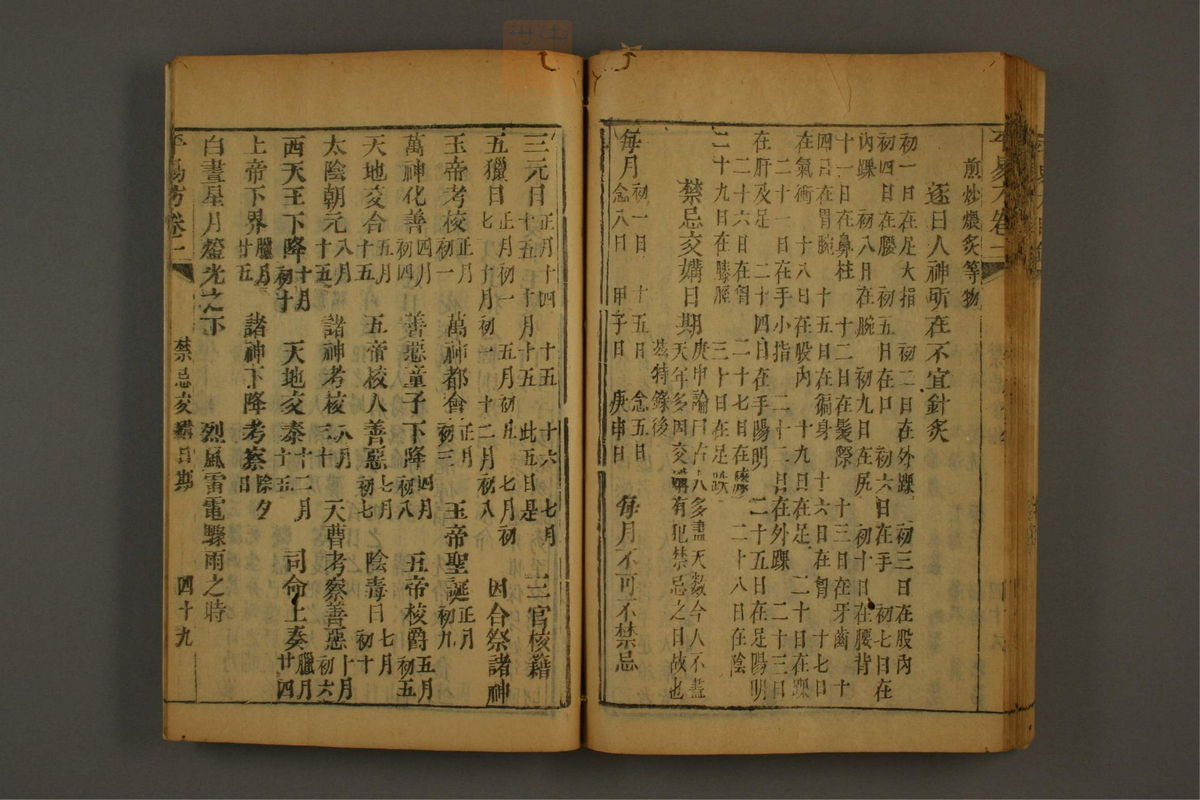 煎炒煨炙等物
逐日人神所在不宜針炙
初一日在足大指　初二日在外踝　初三日在股內
初四日在腰　初五日在口　初六日在手　初七日在
內踝　初八月在腕　初九日在尻　初十日在腰背
十一日在鼻柱　十二日在髮際　十三日在牙齒　十
四日在胃腕　十五日在徧身　十六日在胷　十七日
在氣衝　十八日在股內　十九日在足　二十日在踝
二十一日在手小指　二十二日在外踝　二十三日
在肝及足　二十四日在手陽明　二十五日在足陽明
二十六日在胷　二十七日在膝　二十八日在陰
二十九日在膝脛　三十日在足趺
禁忌交媾日期
庚申論曰古人多盡天數今人不盡
天年多因交媾有犯禁忌之日故也
茲特錄後
每月初一日　十五日　念五日　每月不可不禁忌
念八日　甲子日　庚申日
三元日正月十四　十五　十六　七月
十五　十月十五　此五日是　三官核籍
五獵日正月初一　五月初五　七月初
七　十月初一　十二月初八　因台祭諸神
玉帝考核正月初一　萬神都會正月初三　玉帝聖誕正月初九
萬神化善四月初四　善惡童子下降四月初八　五帝核爵五月初五
天地交合五月十五　五帝核人善惡七月初七　陰毒日七月初十
太陰朝元八月十五　諸神考核八月三十　天曹考察善惡十月初六
西天王下降十月初十　天地交泰十二月十五　司命上奏臘月廿四
上帝下界臘月廿五　諸神下降考察除夕日
白晝星月燈光之下　烈風雷電驟雨之時
平易方卷二　禁忌交媾日期　四十九